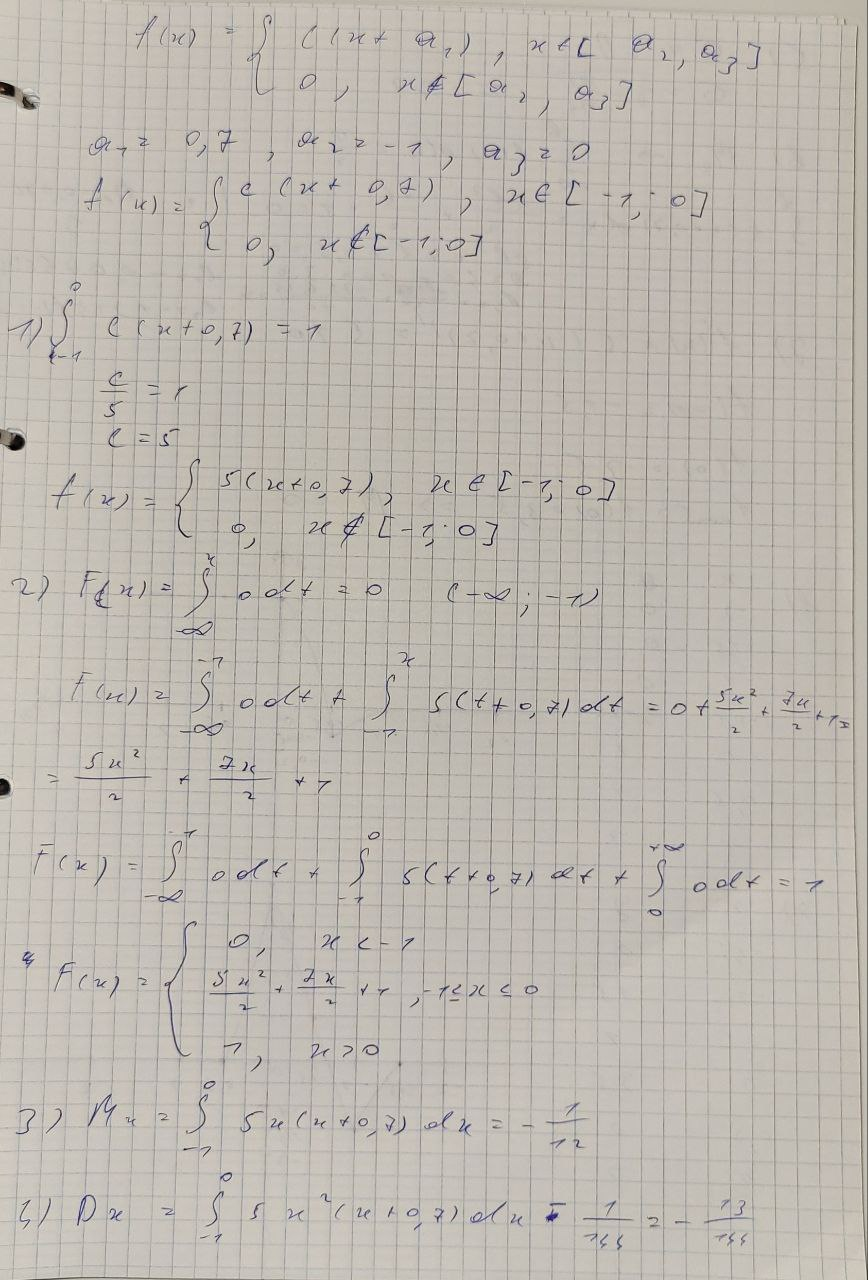 f(x) = { c(x + a₁), x ∈ [ a₂, a₃ ]
0, x ∉ [ a₂, a₃ ]
a₁ = 0,7 , a₂ = -1 , a₃ = 0
f(x) = { c (x + 0,7) , x ∈ [ -1; 0 ]
0, x ∉ [ -1; 0 ]
1) ∫₋₁⁰ c(x+0,7) = 1
c/5 = 1
c = 5
f(x) = { 5(x+0,7), x ∈ [-1; 0]
0, x ∉ [-1; 0]
2) F(x) = ∫_{-∞}^{x} 0 dt = 0 (-∞ ; -1)
F(x) = ∫_{-∞}^{-1} 0 dt + ∫_{-1}^{x} 5(t+0,7) dt = 0 + 5x²/2 + 7x/2 + 1 =
= 5x²/2 + 7x/2 + 1
F(x) = ∫_{-∞}^{-1} 0 dt + ∫_{-1}^{0} 5(t+0,7) dt + ∫_{0}^{+∞} 0 dt = 1
F(x) = { 0, x < -1
5x²/2 + 7x/2 + 1 , -1 ≤ x ≤ 0
1, x > 0
3) Mx = ∫_{-1}^{0} 5x(x+0,7) dx = - 1/12
4) Dx = ∫_{-1}^{0} 5x²(x+0,7) dx - 1/144 = - 13/144